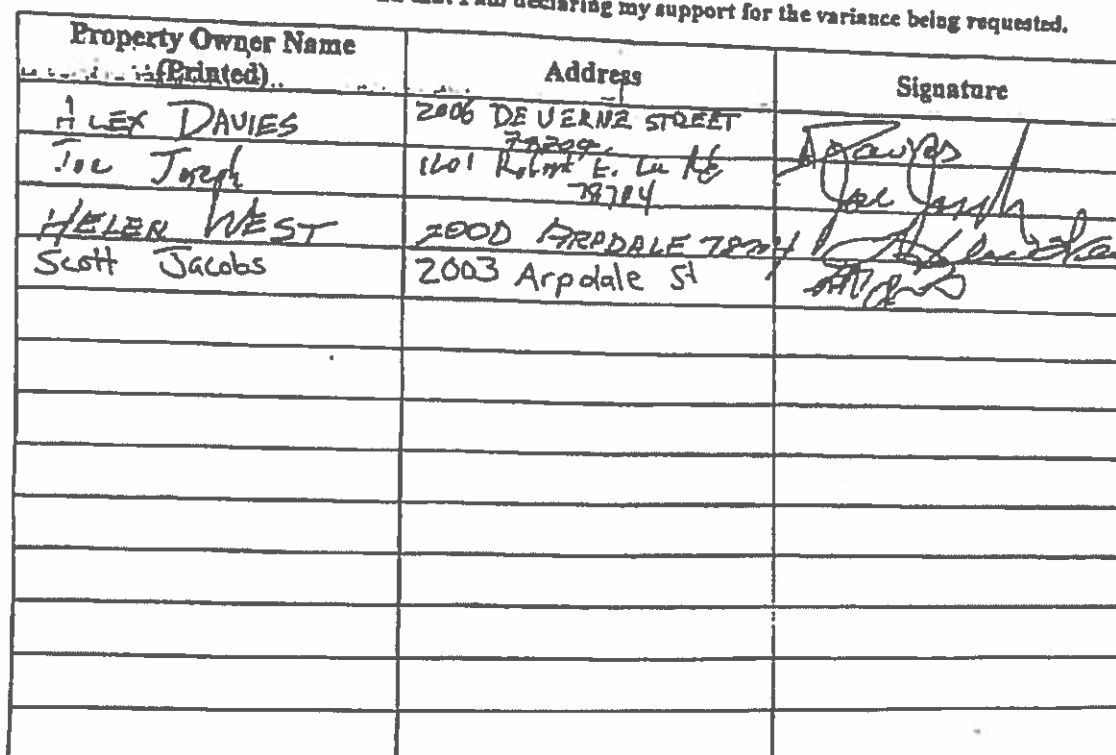 that I am declaring my support for the variance being requested.
Property Owner Name
(Printed)
Address
Signature
ALEX DAVIES
2006 DE VERNE STREET
Davies
Joe Joseph
1601 Robert E. Lee Rd
78704
Joe Joseph
HELEN WEST
2000 ARPDALE 78704
Scott Jacobs
2003 Arpdale St